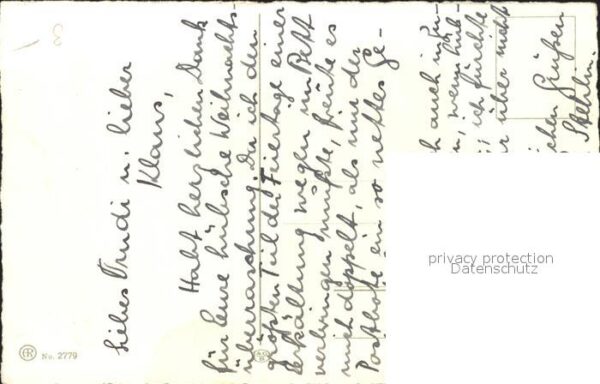 Liebes Trudi u. lieber
Klaus,
Habt herzlichen Dank
für Eure hübsche Weihnachts-
überraschung. Da ich den
größten Teil der Feiertage einer
Erkältung wegen im Bett
verbringen mußte, freute es
mich doppelt, als mir der
Postbote ein so nettes Ge-
auch in
wenn
ich fürchte
über nicht
Grüßen
privacy protection
Datenschutz
No. 2779